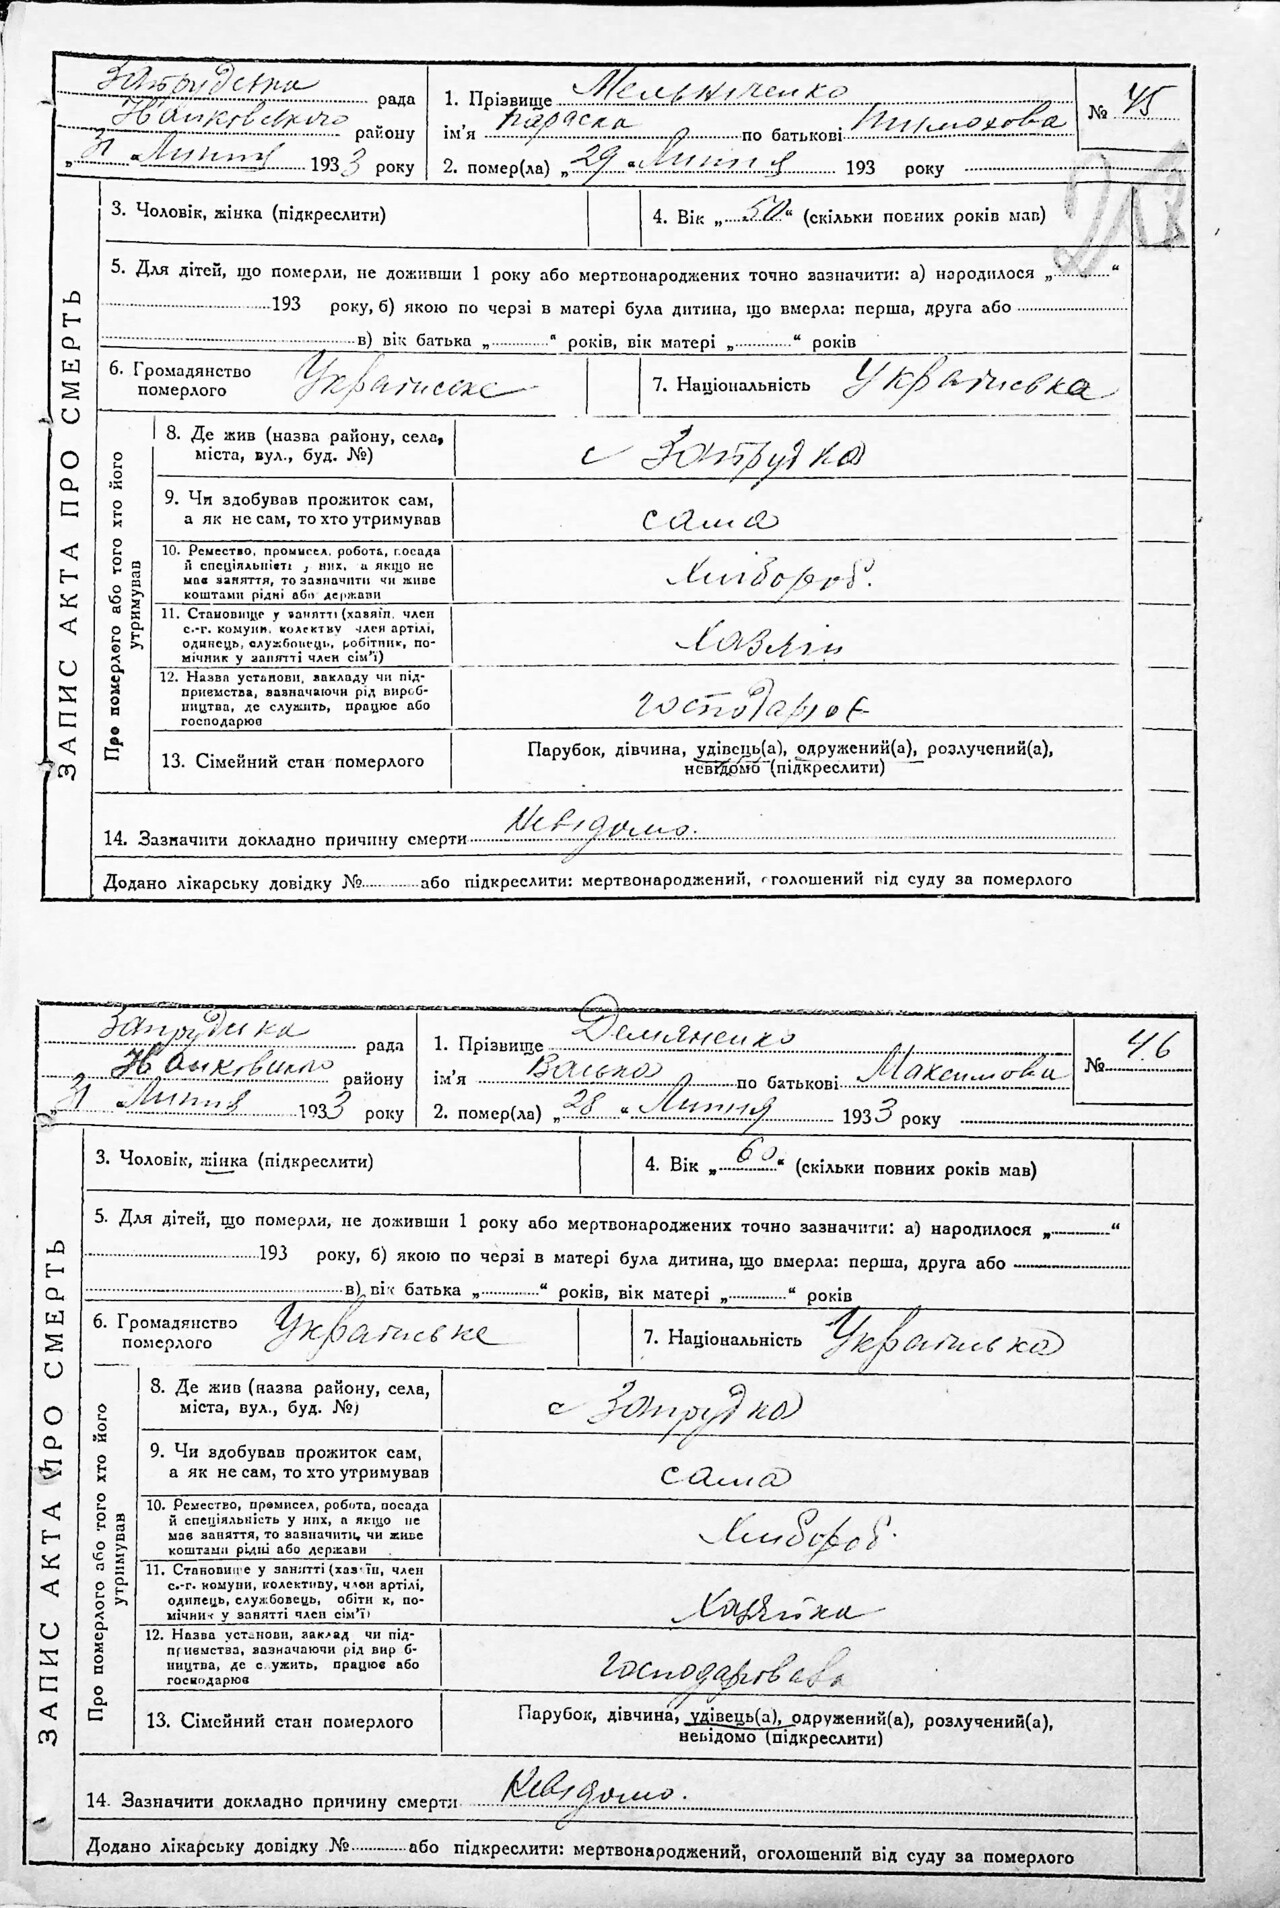 Запрудська рада
1. Прізвище Мельниченко
№ 45
району
ім'я Параска по батькові Тимохова
„31 " Липня 1933 року
2. помер(ла) „29 " Липня 193 року
ЗАПИС АКТА ПРО СМЕРТЬ
3. Чоловік, жінка (підкреслити)
4. Вік „50" (скільки повних років мав)
5. Для дітей, що померли, не доживши 1 року або мертвонароджених точно зазначити: а) народилося „ "
193 року, б) якою по черзі в матері була дитина, що вмерла: перша, друга або
в) вік батька „ " років, вік матері „ " років
6. Громадянство
померлого
Украінське
7. Національність Украінська
Про померлого або того хто його
утримував
8. Де жив (назва району, села,
міста, вул., буд. №)
с Запрудка
9. Чи здобував прожиток сам,
а як не сам, то хто утримував
сама
10. Ремество, промисел, робота, посада
й спеціяльність у них, а якщо не
має заняття, то зазначити чи живе
коштами рідні або держави
Хлібороб.
11. Становище у занятті (хазяїн, член
с.-г. комуни, колективу член артілі,
одинець, службовець, робітник, по-
мічник у занятті член сім'ї)
Хазяін
12. Назва установи, закладу чи під-
приємства, зазначаючи рід вироб-
ництва, де служить, працює або
господарює
господарює
13. Сімейний стан померлого
Парубок, дівчина, удівець(а), одружений(а), розлучений(а),
невідомо (підкреслити)
14. Зазначити докладно причину смерти Невідомо.
Додано лікарську довідку № або підкреслити: мертвонароджений, оголошений від суду за померлого
рада
1. Прізвище Демяненко
№ 46
району
ім'я Васька по батькові Максимова
„31 " Липня 1933 року
2. помер(ла) „28 " Липня 1933 року
ЗАПИС АКТА ПРО СМЕРТЬ
3. Чоловік, жінка (підкреслити)
4. Вік „60" (скільки повних років мав)
5. Для дітей, що померли, не доживши 1 року або мертвонароджених точно зазначити: а) народилося „ "
193 року, б) якою по черзі в матері була дитина, що вмерла: перша, друга або
в) вік батька „ " років, вік матері „ " років
6. Громадянство
померлого
Украінське
7. Національність Украінська
Про померлого або того хто його
утримував
8. Де жив (назва району, села,
міста, вул., буд. №)
с Запрудка
9. Чи здобував прожиток сам,
а як не сам, то хто утримував
сама
10. Ремество, промисел, робота, посада
й спеціяльність у них, а якщо не
має заняття, то зазначити, чи живе
коштами рідні або держави
Хлібороб.
11. Становище у занятті (хазяїн, член
с.-г. комуни, колективу, член артілі,
одинець, службовець, робітник, по-
мічник у занятті член сім'ї)
Хазяйка
12. Назва установи, заклад чи під-
приємства, зазначаючи рід вироб-
ництва, де служить, працює або
господарює
господарювала
13. Сімейний стан померлого
Парубок, дівчина, удівець(а), одружений(а), розлучений(а),
невідомо (підкреслити)
14. Зазначити докладно причину смерти Невідомо.
Додано лікарську довідку № або підкреслити: мертвонароджений, оголошений від суду за померлого